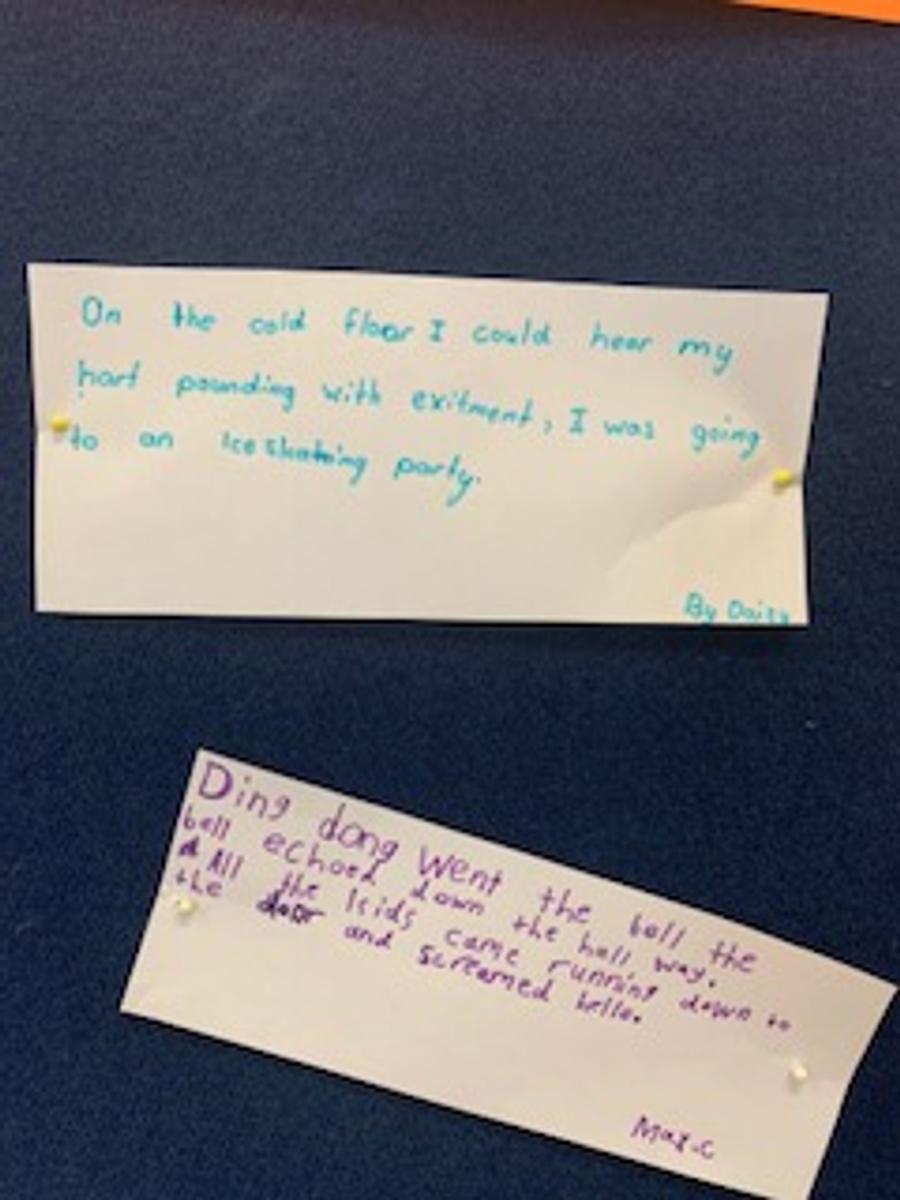 On the cold floor I could hear my
hart pounding with exitment, I was going
to an Ice Skating party.
By Daisy
Ding dong Went the bell the
bell echoed down the hall way.
All the kids came running down to
the door and screamed hello.
Max.C